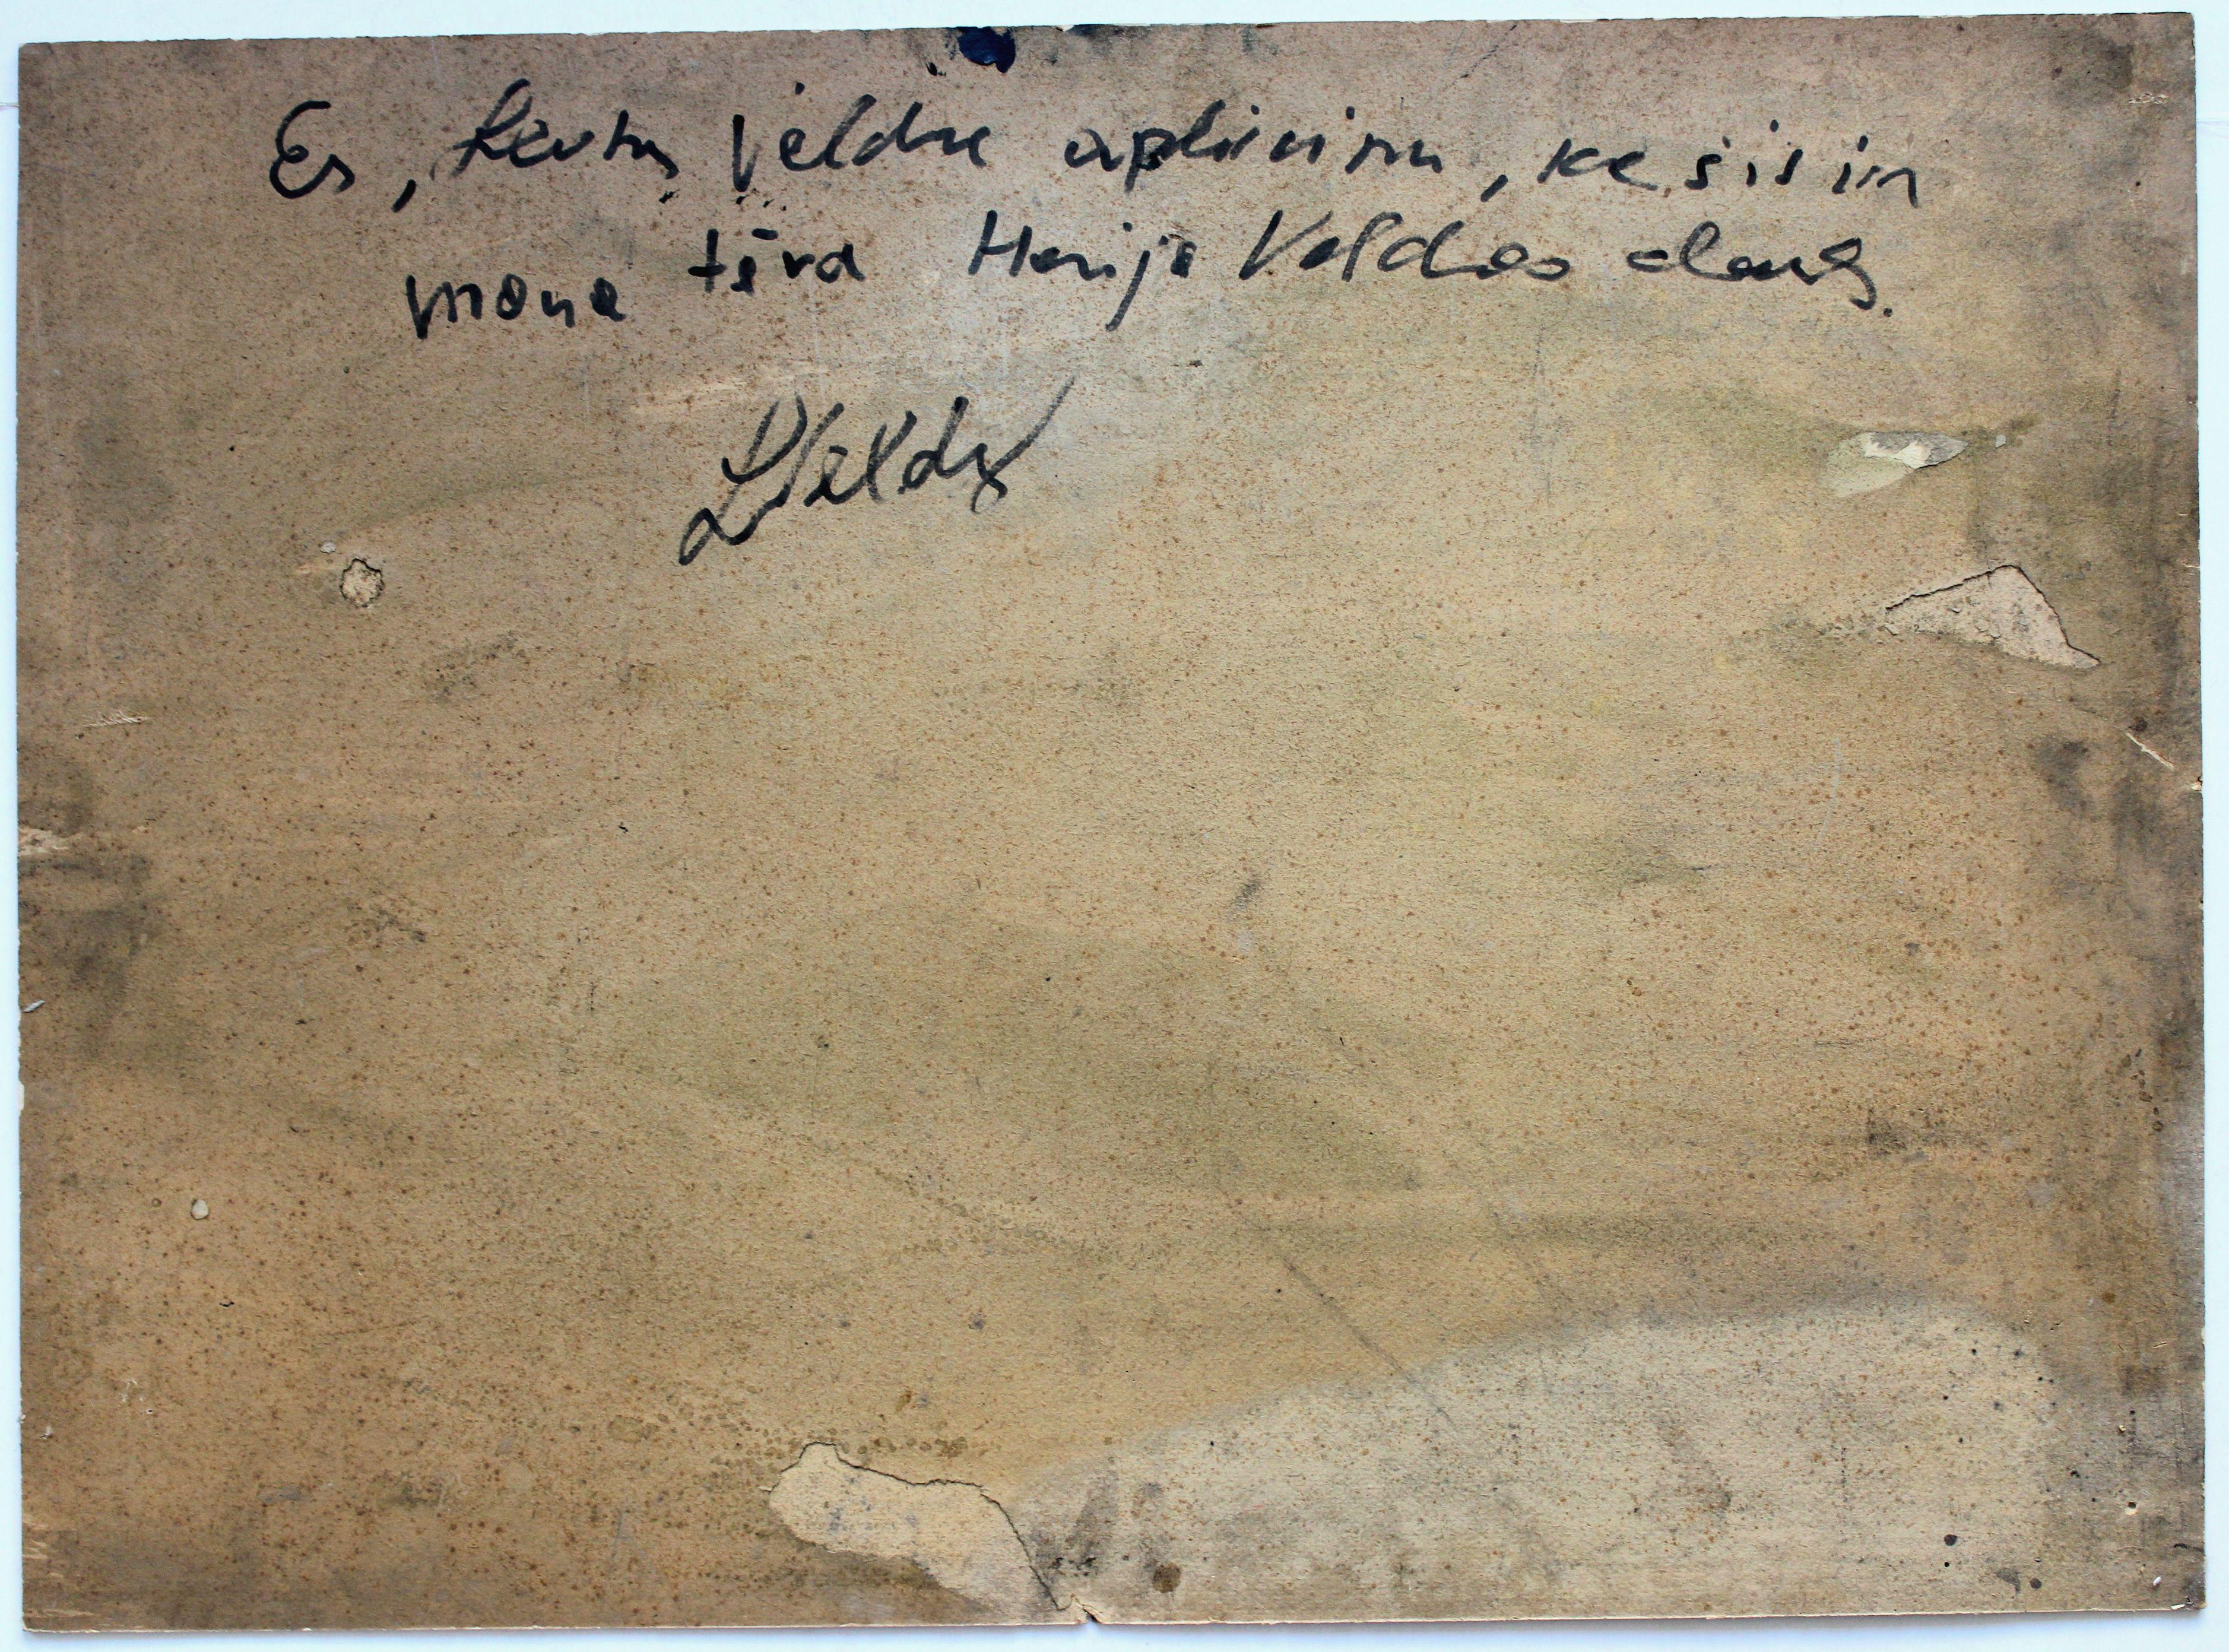 Es, Veldre apliecinu, ka šis ir
mana tēva Harija Veldres darbs.
LVeldre